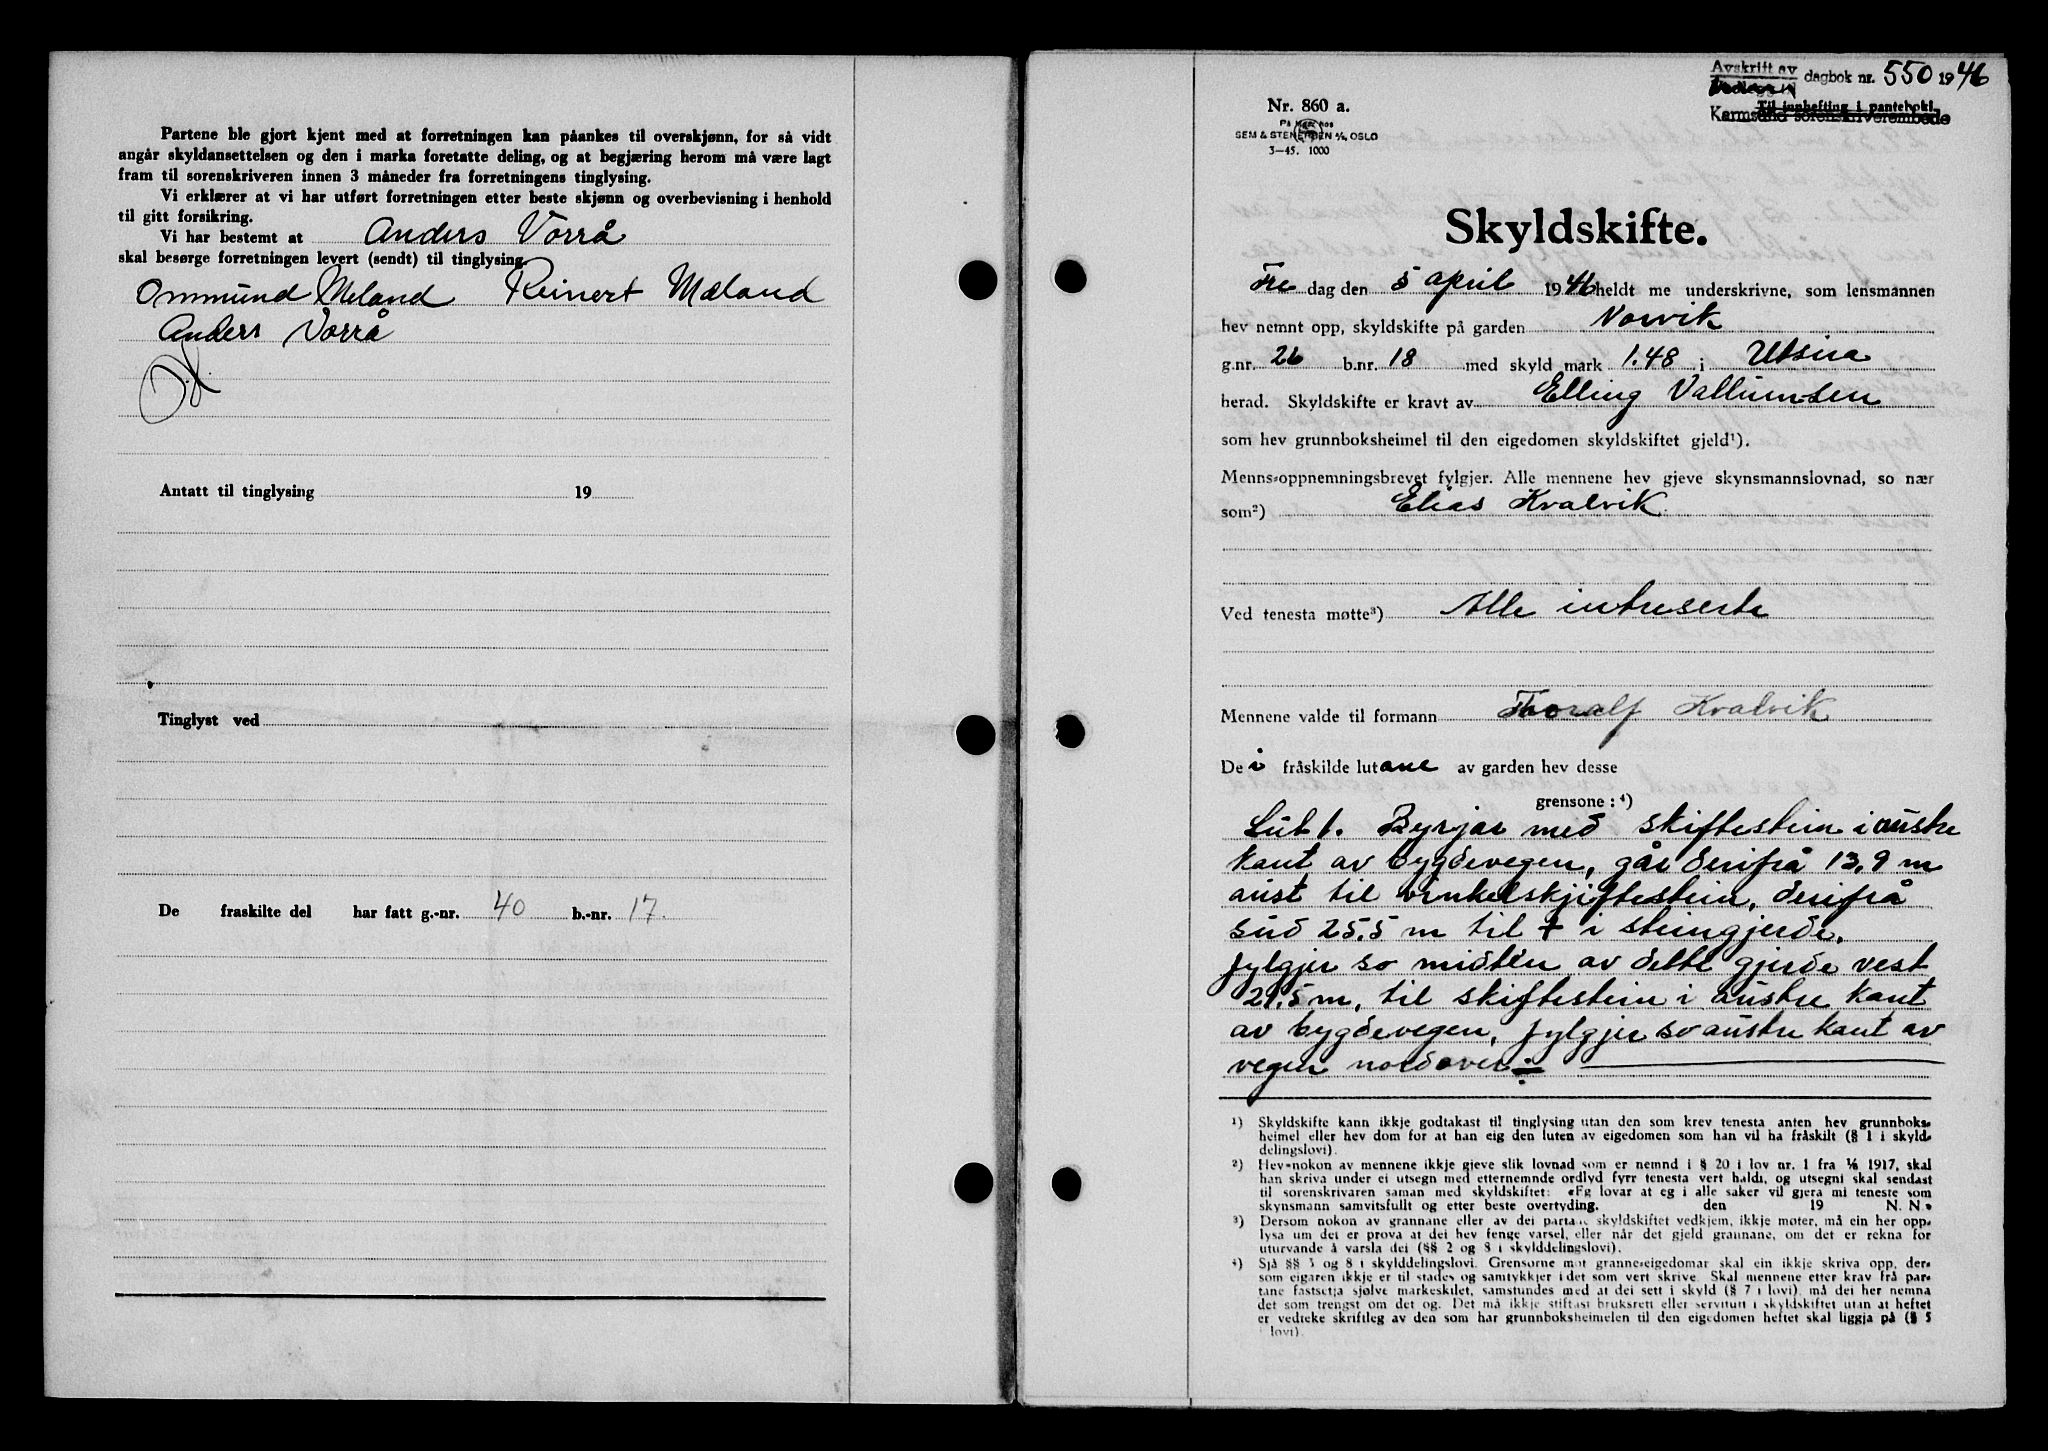 Partene ble gjort kjent med at forretningen kan påankes til overskjønn, for så vidt
angår skyldansettelsen og den i marka foretatte deling, og at begjæring herom må være lagt
fram til sorenskriveren innen 3 måneder fra forretningens tinglysing.
Vi erklærer at vi har utført forretningen etter beste skjønn og overbevisning i henhold
til gitt forsikring.
Vi har bestemt at Anders Vorrå
skal besørge forretningen levert (sendt) til tinglysing.
Ommund Meland Reinert Mæland
Anders Vorrå
Antatt til tinglysing 19
Tinglyst ved
De fraskilte del har fatt g.-nr. 40 b.-nr. 17.
Avskrift av dagbok nr. 550 1946
Til innhefting i pantebok
Karmsund sorenskriverembede
Nr. 860 a.
På lager hos
SEM & STENERSEN A/S, OSLO
3-45. 1000
Skyldskifte.
Fre dag den 5 april 1946 heldt me underskrivne, som lensmannen
hev nemnt opp, skyldskifte på garden Norvik
g.nr. 26 b.nr. 18 med skyld mark 1.48 i Utsira
herad. Skyldskifte er kravt av Elling Vallumsen
som hev grunnboksheimel til den eigedomen skyldskiftet gjeld¹).
Menns-oppnemningsbrevet fylgjer. Alle mennene hev gjeve skynsmannslovnad, so nær
som²) Elias Kvalvik
Ved tenesta møtte³) Alle intreserte
Mennene valde til formann Thoralf Kvalvik
De i fråskilde lutane av garden hev desse
grensone: ⁴)
Lut 1. Byrjar med skiftestein i austre
kant av bygdevegen, går derifrå 13,9 m
aust til vinkelskjiftestein, derifrå
sud 25.5 m til + i steingjerde.
fylgjer so midten av dette gjerde vest
21.5 m, til skiftestein i austre kant
av bygdevegen, fylgjer so austre kant av
vegen nordover
¹) Skyldskifte kann ikkje godtakast til tinglysing utan den som krev tenesta anten hev grunnboks-
heimel eller hev dom for at han eig den luten av eigedomen som han vil ha fråskilt (§ 1 i skyld-
delingslovi).
²) Hev nokon av mennene ikkje gjeve slik lovnad som er nemnd i § 20 i lov nr. 1 fra 1/6 1917, skal
han skriva under ei utsegn med etternemnde ordlyd fyrr tenesta vert haldi, og utsegni skal sendast
til sorenskrivaren saman med skyldskiftet: «Eg lovar at eg i alle saker vil gjera mi teneste som
skynsmann samvitsfullt og etter beste overtyding. den 19 N. N.»
³) Dersom nokon av grannane eller av dei partane skyldskiftet vedkjem, ikkje møter, må ein her opp-
lysa um det er prova at dei hev fenge varsel, eller når det gjeld grannane, om det er rekna for
uturvande å varsla dei (§§ 2 og 8 i skylddelingslovi).
⁴) Sjå §§ 3 og 8 i skylddelingslovi. Grensorne mot granne-eigedomar skal ein ikkje skriva opp, der-
som eigaren ikkje er til stades og samtykkjer i det som vert skrive. Skal mennene etter krav frå par-
tane fastsetja sjølve markeskilet, samstundes med at dei sett i skyld (§ 7 i lovi), må dei her nemna
det som trengst om det og. Det må ikkje stiftast bruksrett eller servitutt i skyldskiftet utan at heftet
er vedteke skriftleg av den som har grunnboksheimelen til den eigedomen heftet skal liggja på (§ 5
i lovi).